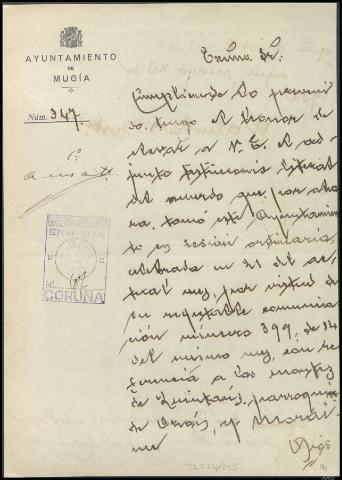 AYUNTAMIENTO
DE
MUGÍA
Núm. 347.
1º
ENTRADA
Nº 187
CORUÑA
Excmo Sr:
Cumpliendo lo preveni
do, tengo el honor de
elevar a V. E. el ad-
junto testimonio literal
del acuerdo que, por aho
ra, tomó este Ayuntamien
to en sesión ordinaria,
celebrada en 21 del ac-
tual mes, por virtud de
su respetable comunica
ción número 399, de 14
del mismo mes, con re-
ferencia a los montes
de Quintáns, parroquia
de Ozón, y Morai-
me
Dios